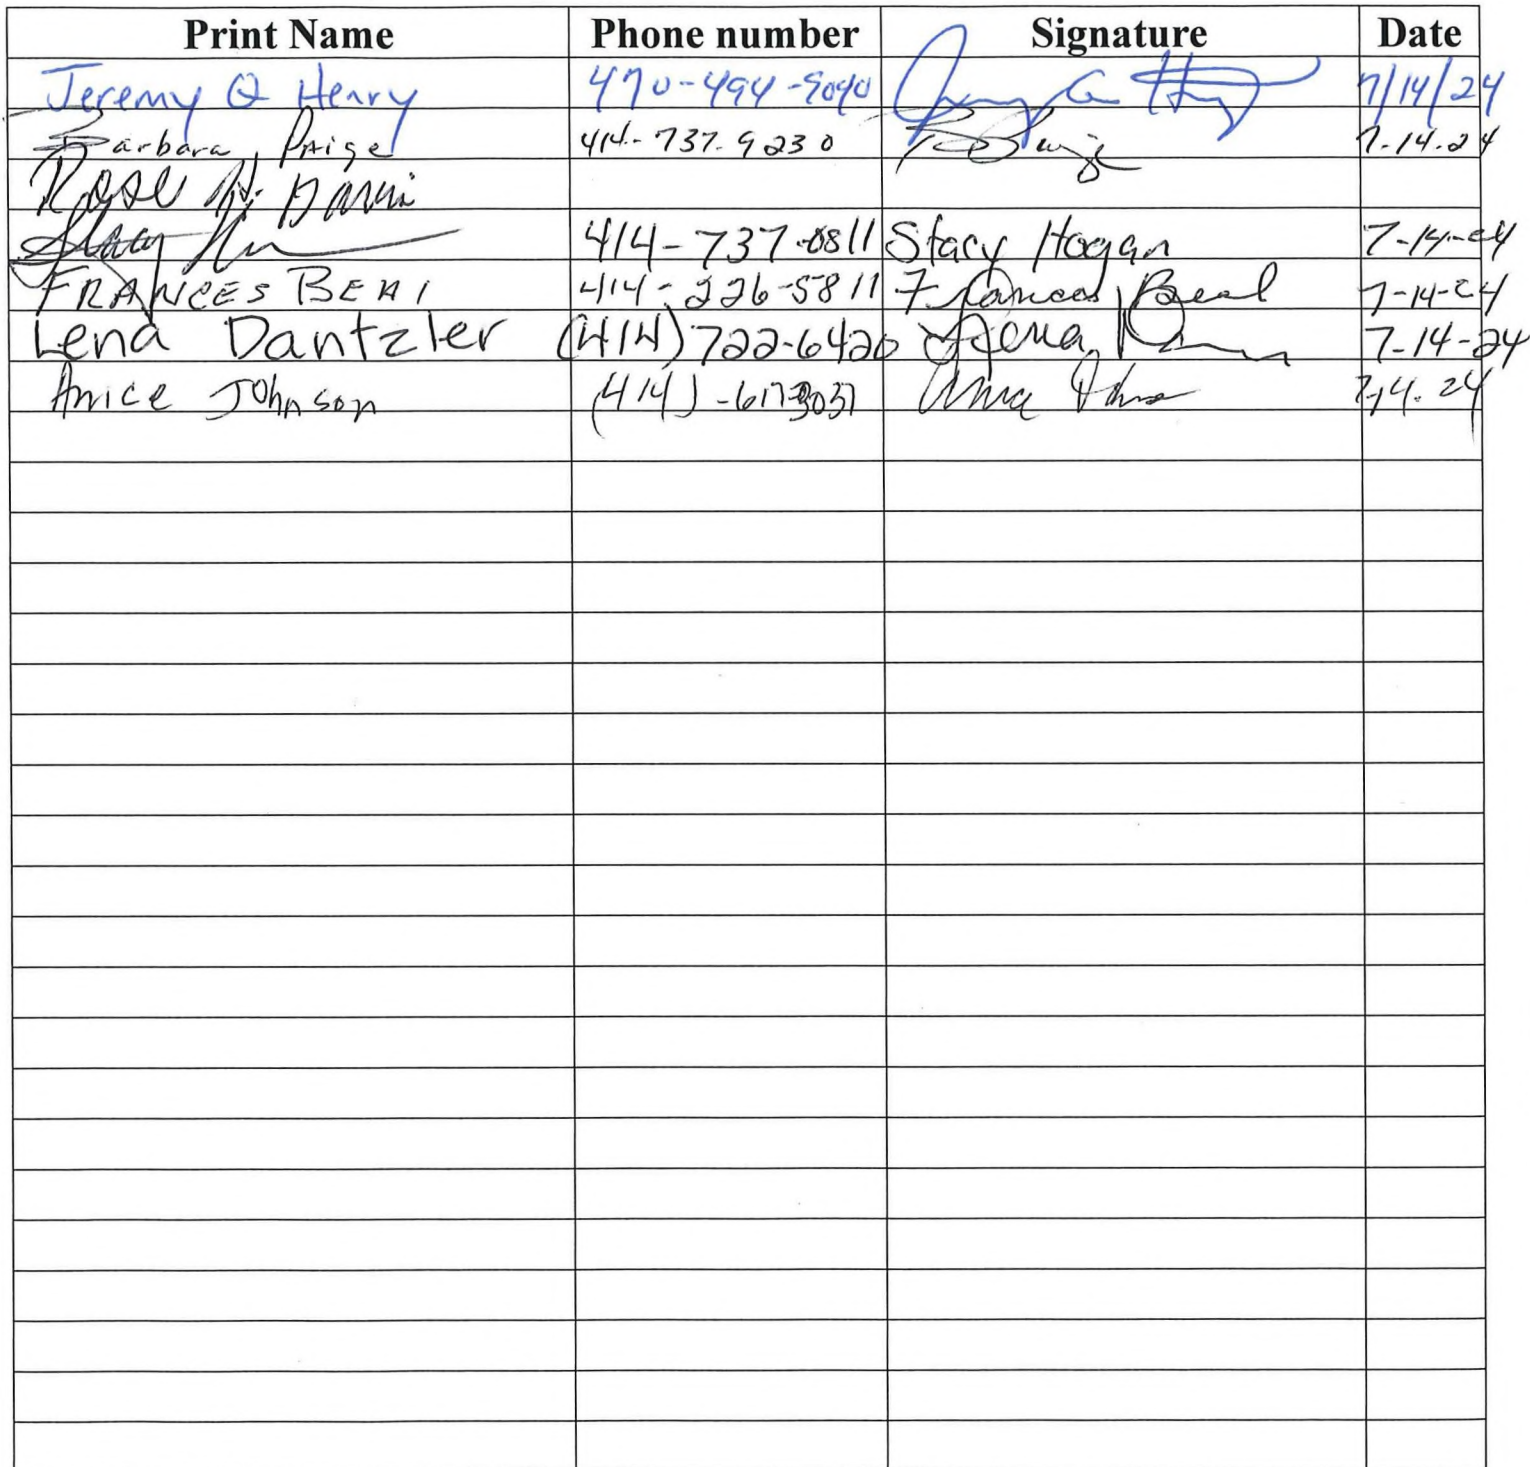 Print Name Phone number Signature Date
Jeremy Q Henry 470-494-9090 7/14/24
Barbara Paige 414-737-9230 7-14-24
Rose
Stacy 414-737-0811 Stacy Hogan 7-14-24
FRANCES BEAl 414-226-5811 Frances Beal 7-14-24
Lena Dantzler (414)722-6420 Lena 7-14-24
Anice JOhnson (414)- 7.14.24